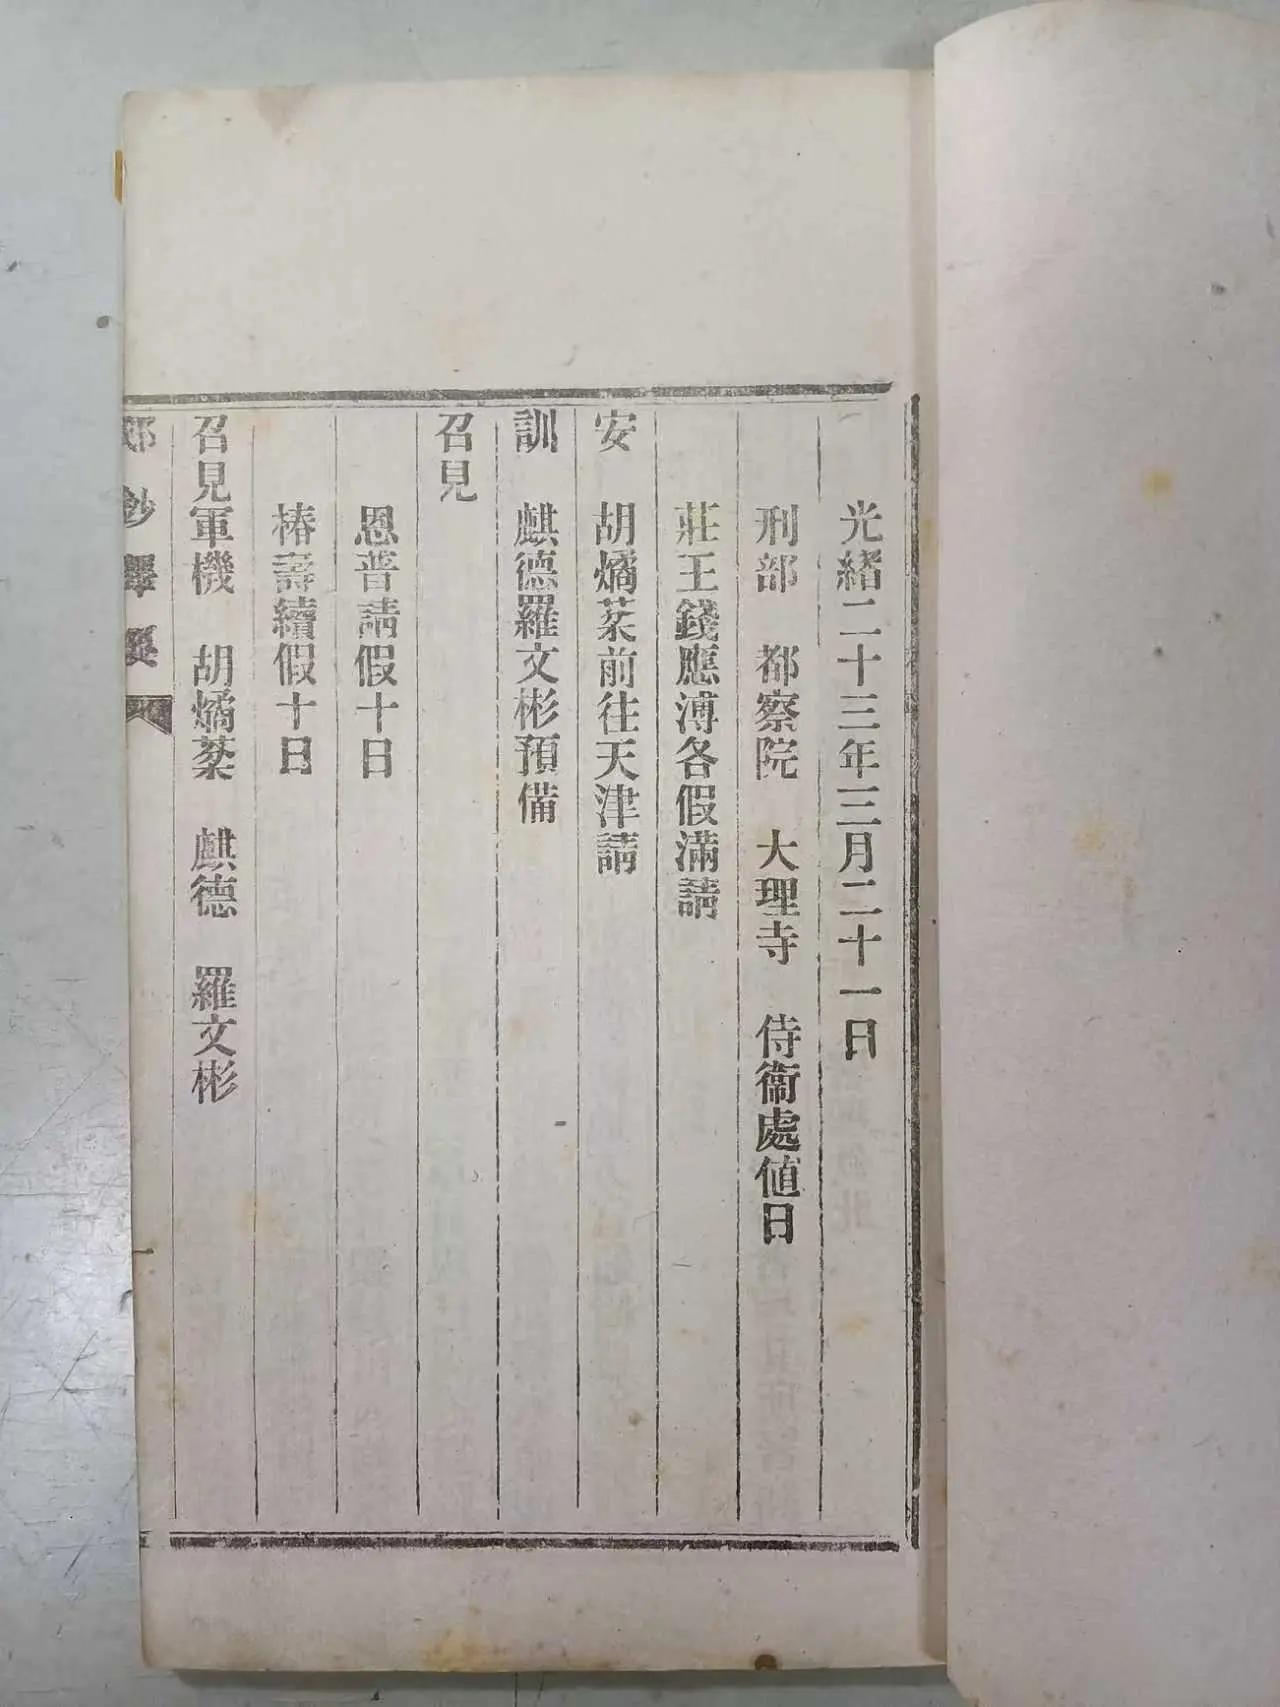 光緒二十三年三月二十一日
刑部　都察院　大理寺　侍衞處値日
莊王錢應溥各假滿請
安　胡燏棻前往天津請
訓　麒德羅文彬預備
召見
恩普請假十日
椿壽續假十日
召見軍機　胡燏棻　麒德　羅文彬
邸鈔擇要
一